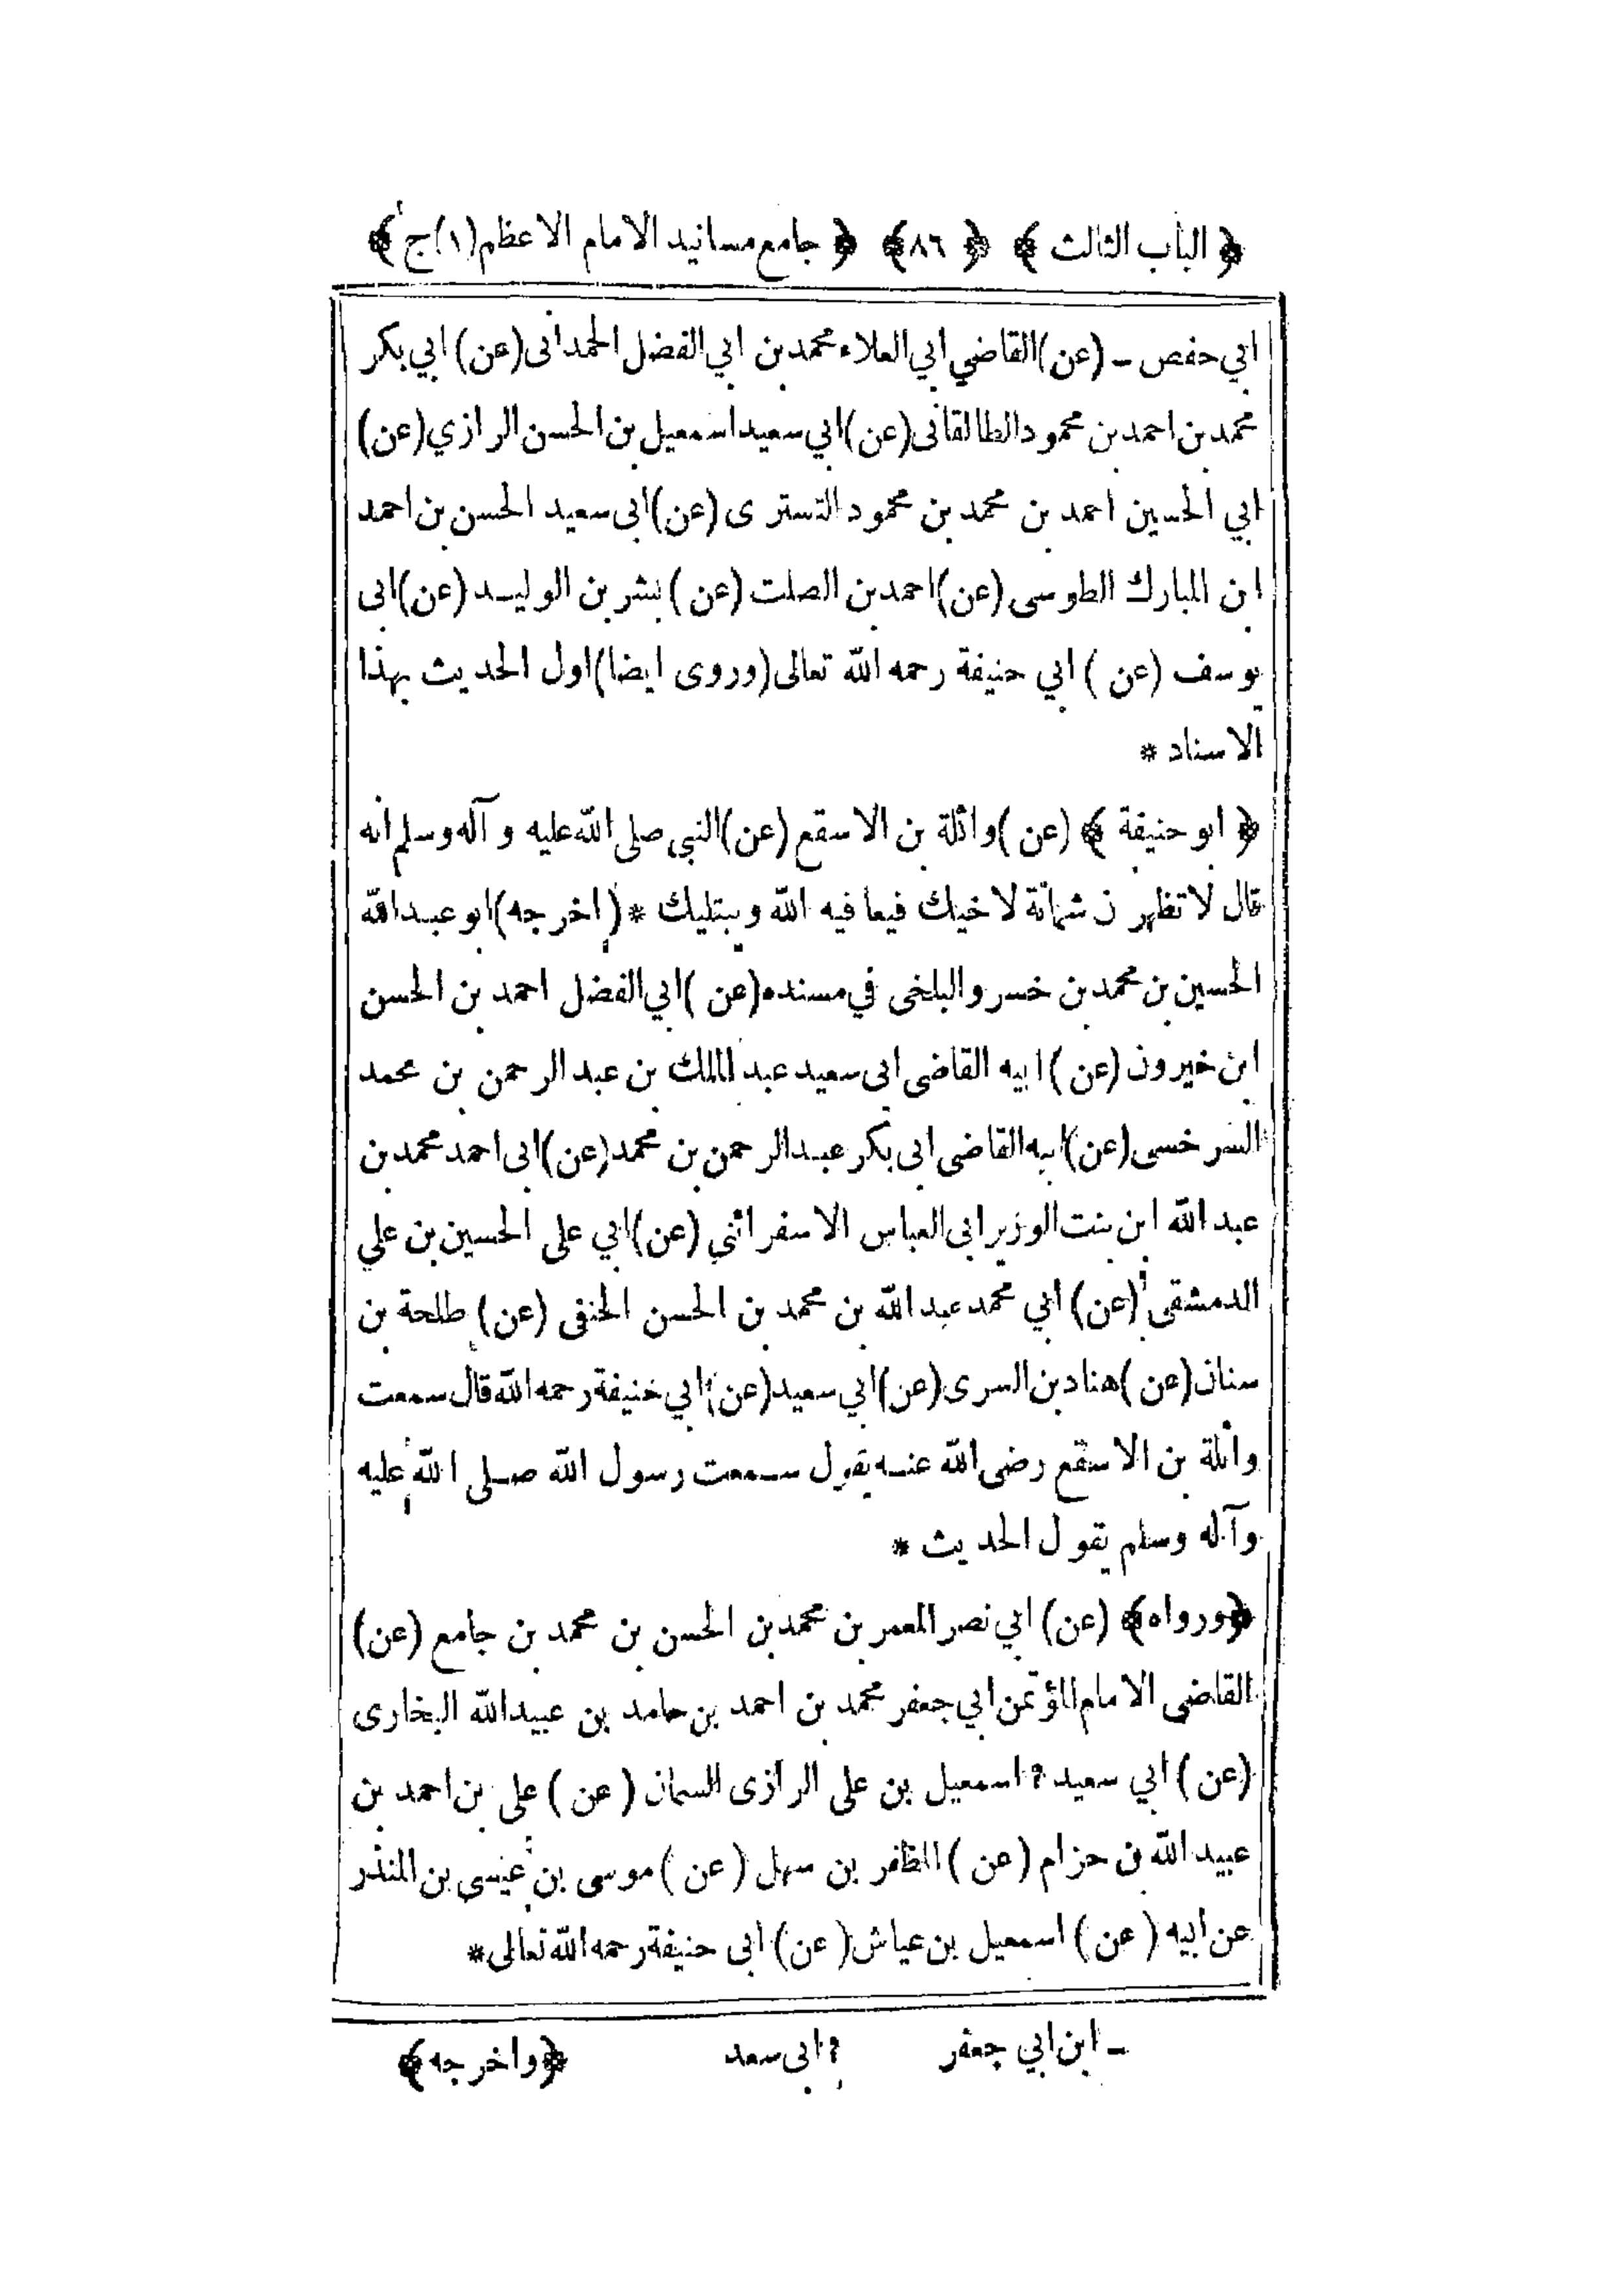 ﴿ الباب الثالث ﴾ ﴿ ٨٦ ﴾ ﴿ جامع مسانيد الامام الاعظم (١) ج ﴾
ابي حفص - (عن) القاضي ابي العلاء محمد بن ابي الفضل الحمدانى (عن) ابي بكر
محمد بن احمد بن محمود الطالقانى (عن) ابي سعيد اسمعيل بن الحسن الرازي (عن)
ابي الحسين احمد بن محمد بن محمود التسترى (عن) ابى سعيد الحسن بن احمد
ابن المبارك الطوسى (عن) احمد بن الصلت (عن) بشر بن الوليد (عن) ابى
يوسف (عن) ابي حنيفة رحمه الله تعالى (وروى ايضا) اول الحديث بهذا
الاسناد *
﴿ ابو حنيفة ﴾ (عن) واثلة بن الاسقع (عن) النبي صلى الله عليه وآله وسلم انه
قال لا تظهرن شماتة لاخيك فيعافيه الله ويبتليك * (اخرجه) ابو عبدالله
الحسين بن محمد بن خسرو البلخى في مسنده (عن) ابي الفضل احمد بن الحسن
ابن خيرون (عن) ابيه القاضى ابى سعيد عبد المالك بن عبد الرحمن بن محمد
السرخسى (عن) ابيه القاضى ابى بكر عبدالرحمن بن محمد (عن) ابى احمد محمد بن
عبد الله ابن بنت الوزير ابى العباس الاسفرائنى (عن) ابي على الحسين بن علي
الدمشقى (عن) ابي محمد عبد الله بن محمد بن الحسن الحنفى (عن) طلحة بن
سنان (عن) هناد بن السرى (عن) ابي سعيد (عن) ابي حنيفة رحمه الله قال سمعت
واثلة بن الاسقع رضى الله عنه يقول سمعت رسول الله صلى الله عليه
وآله وسلم يقول الحديث *
﴿ورواه﴾ (عن) ابي نصر المعمر بن محمد بن الحسن بن محمد بن جامع (عن)
القاضى الامام المؤتمن ابي جعفر محمد بن احمد بن حامد بن عبيد الله البخارى
(عن) ابي سعيد ? اسمعيل بن على الرازى السمان (عن) على بن احمد بن
عبيد الله بن حزام (عن) المظفر بن سهل (عن) موسى بن عيسى بن المنذر
عن ابيه (عن) اسمعيل بن عياش (عن) ابى حنيفة رحمه الله تعالى *
- ابن ابي جعفر ? ابى سعد ﴿واخرجه﴾